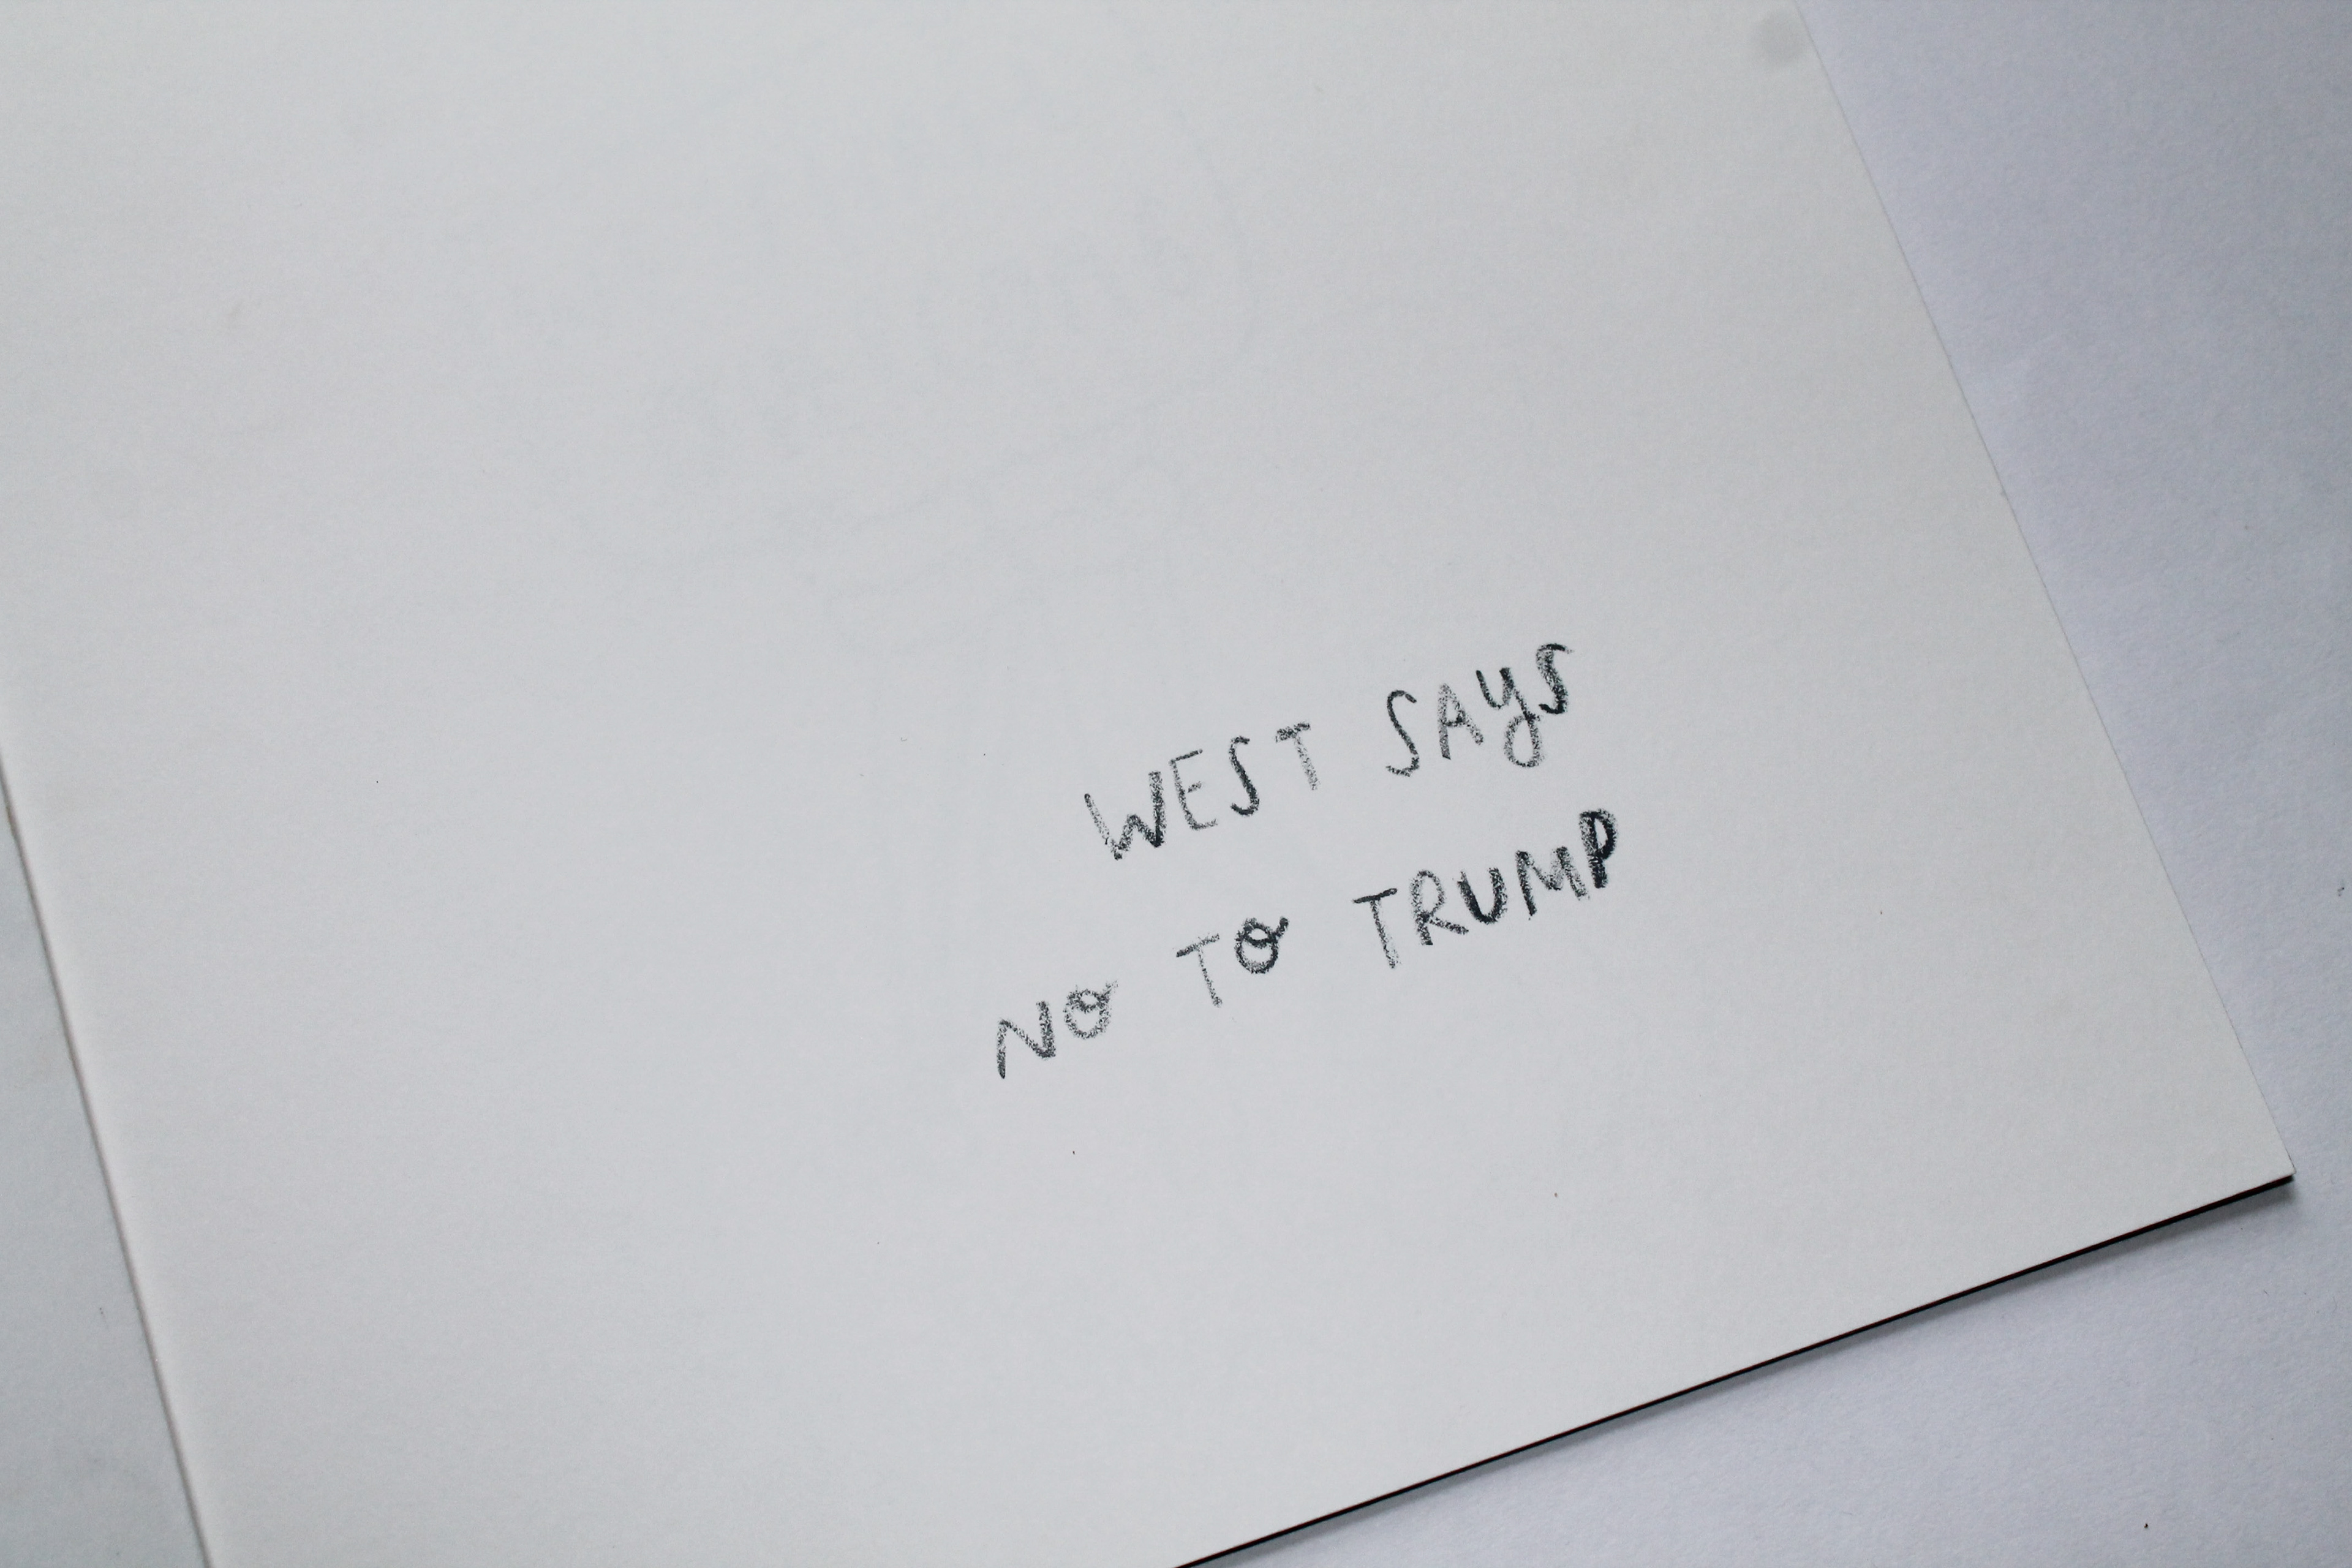 WEST SAYS
NO TO TRUMP